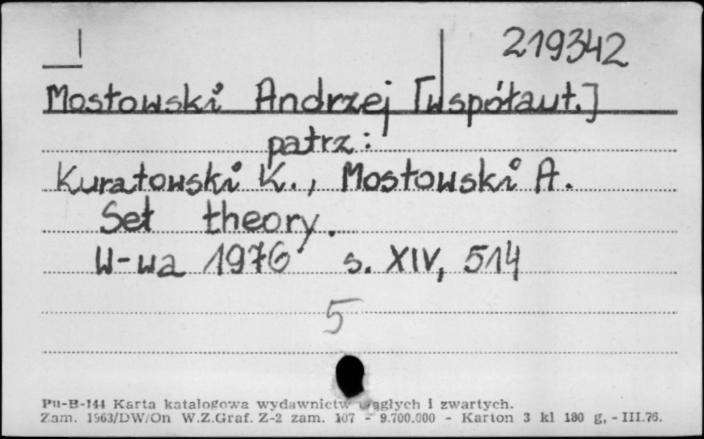 219342
Mostowski Andrzej [współaut.]
patrz:
Kuratowski K., Mostowski A.
Set theory.
W-wa 1976 s. XIV, 514
5
Pu-B-144 Karta katalogowa wydawnictw ciągłych i zwartych.
Zam. 1563/DW/On W.Z.Graf. Z-2 zam. 107 - 9.700.000 - Karton 3 kl 180 g, - III.76.